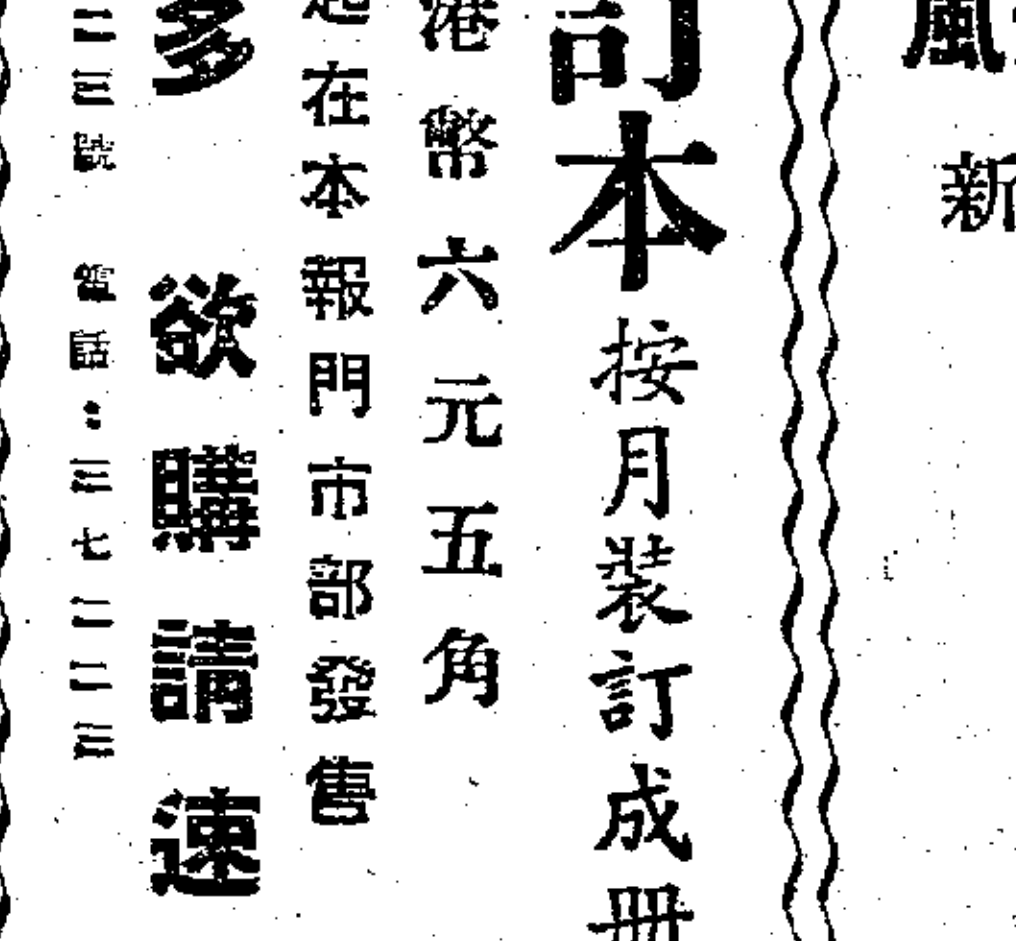 風
新
訂本按月裝訂成册
港幣六元五角
起在本報門市部發售
多 欲購請速
號 電話：七二二